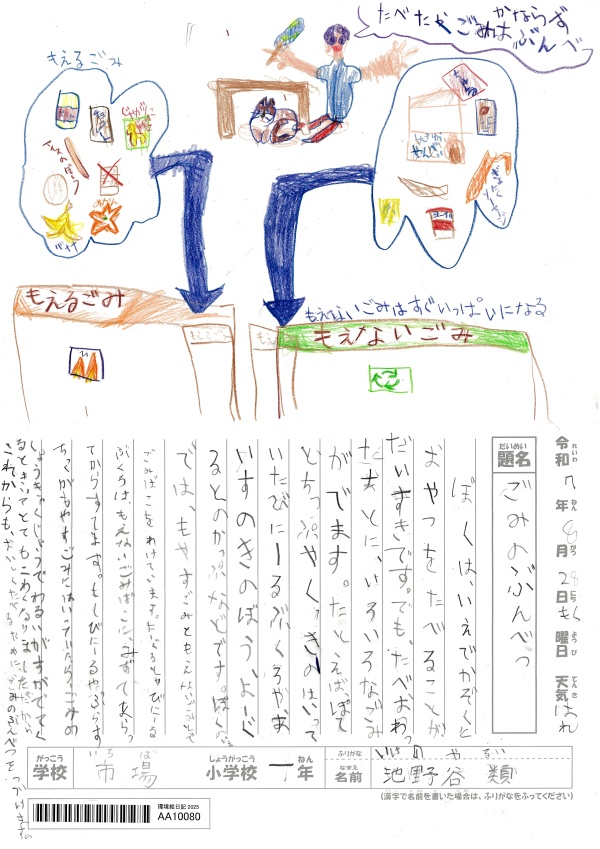 たべたら ごみは かならず
ぶんべつ
もえるごみ
アイスのぼう
みかん
バナナ
もえるごみ
もえないごみはすぐいっぱいになる
もえないごみ
令和 れいわ 7 年 ねん 8 月 がつ 28 日 にち もく 曜日 ようび 天気 てんき はれ
題名 だいめい ごみのぶんべつ
ぼくは、いえでかぞくと
おやつをたべることが
だいすきです。でも、たべおわっ
たあとに、いろいろなごみ
がでます。たとえば、ぽて
とちっぷやくっきーのはいって
いたびにーるぶくろや、あ
いすのきのぼう、よーぐ
るとのかっぷなどです。ぼくの
では、もやすごみともえないごみとで
ごみばこをわけています。びにーる
ぶくろは、もえないごみばこに、みずであらっ
てからすてます。もしびにーるやぷらす
ちっくがもやすごみにはいっていたら、ごみの
しょうきゃくじょうでわるいがすがでてく
るときいてとてもこわくなりました。だから
これからも、おいしくたべるためにごみのぶんべつをつづけます。
学校 がっこう 市場 いちば 小学校 しょうがっこう 一 年 ねん
ふりがな いけのや るい
名前 なまえ 池野谷 類
(漢字で名前を書いた場合は、ふりがなをふってください)
環境絵日記 2025
AA10080